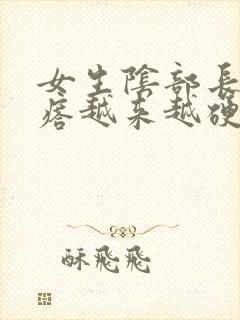 女生陰部長
痞越来越硬
酥飛飛